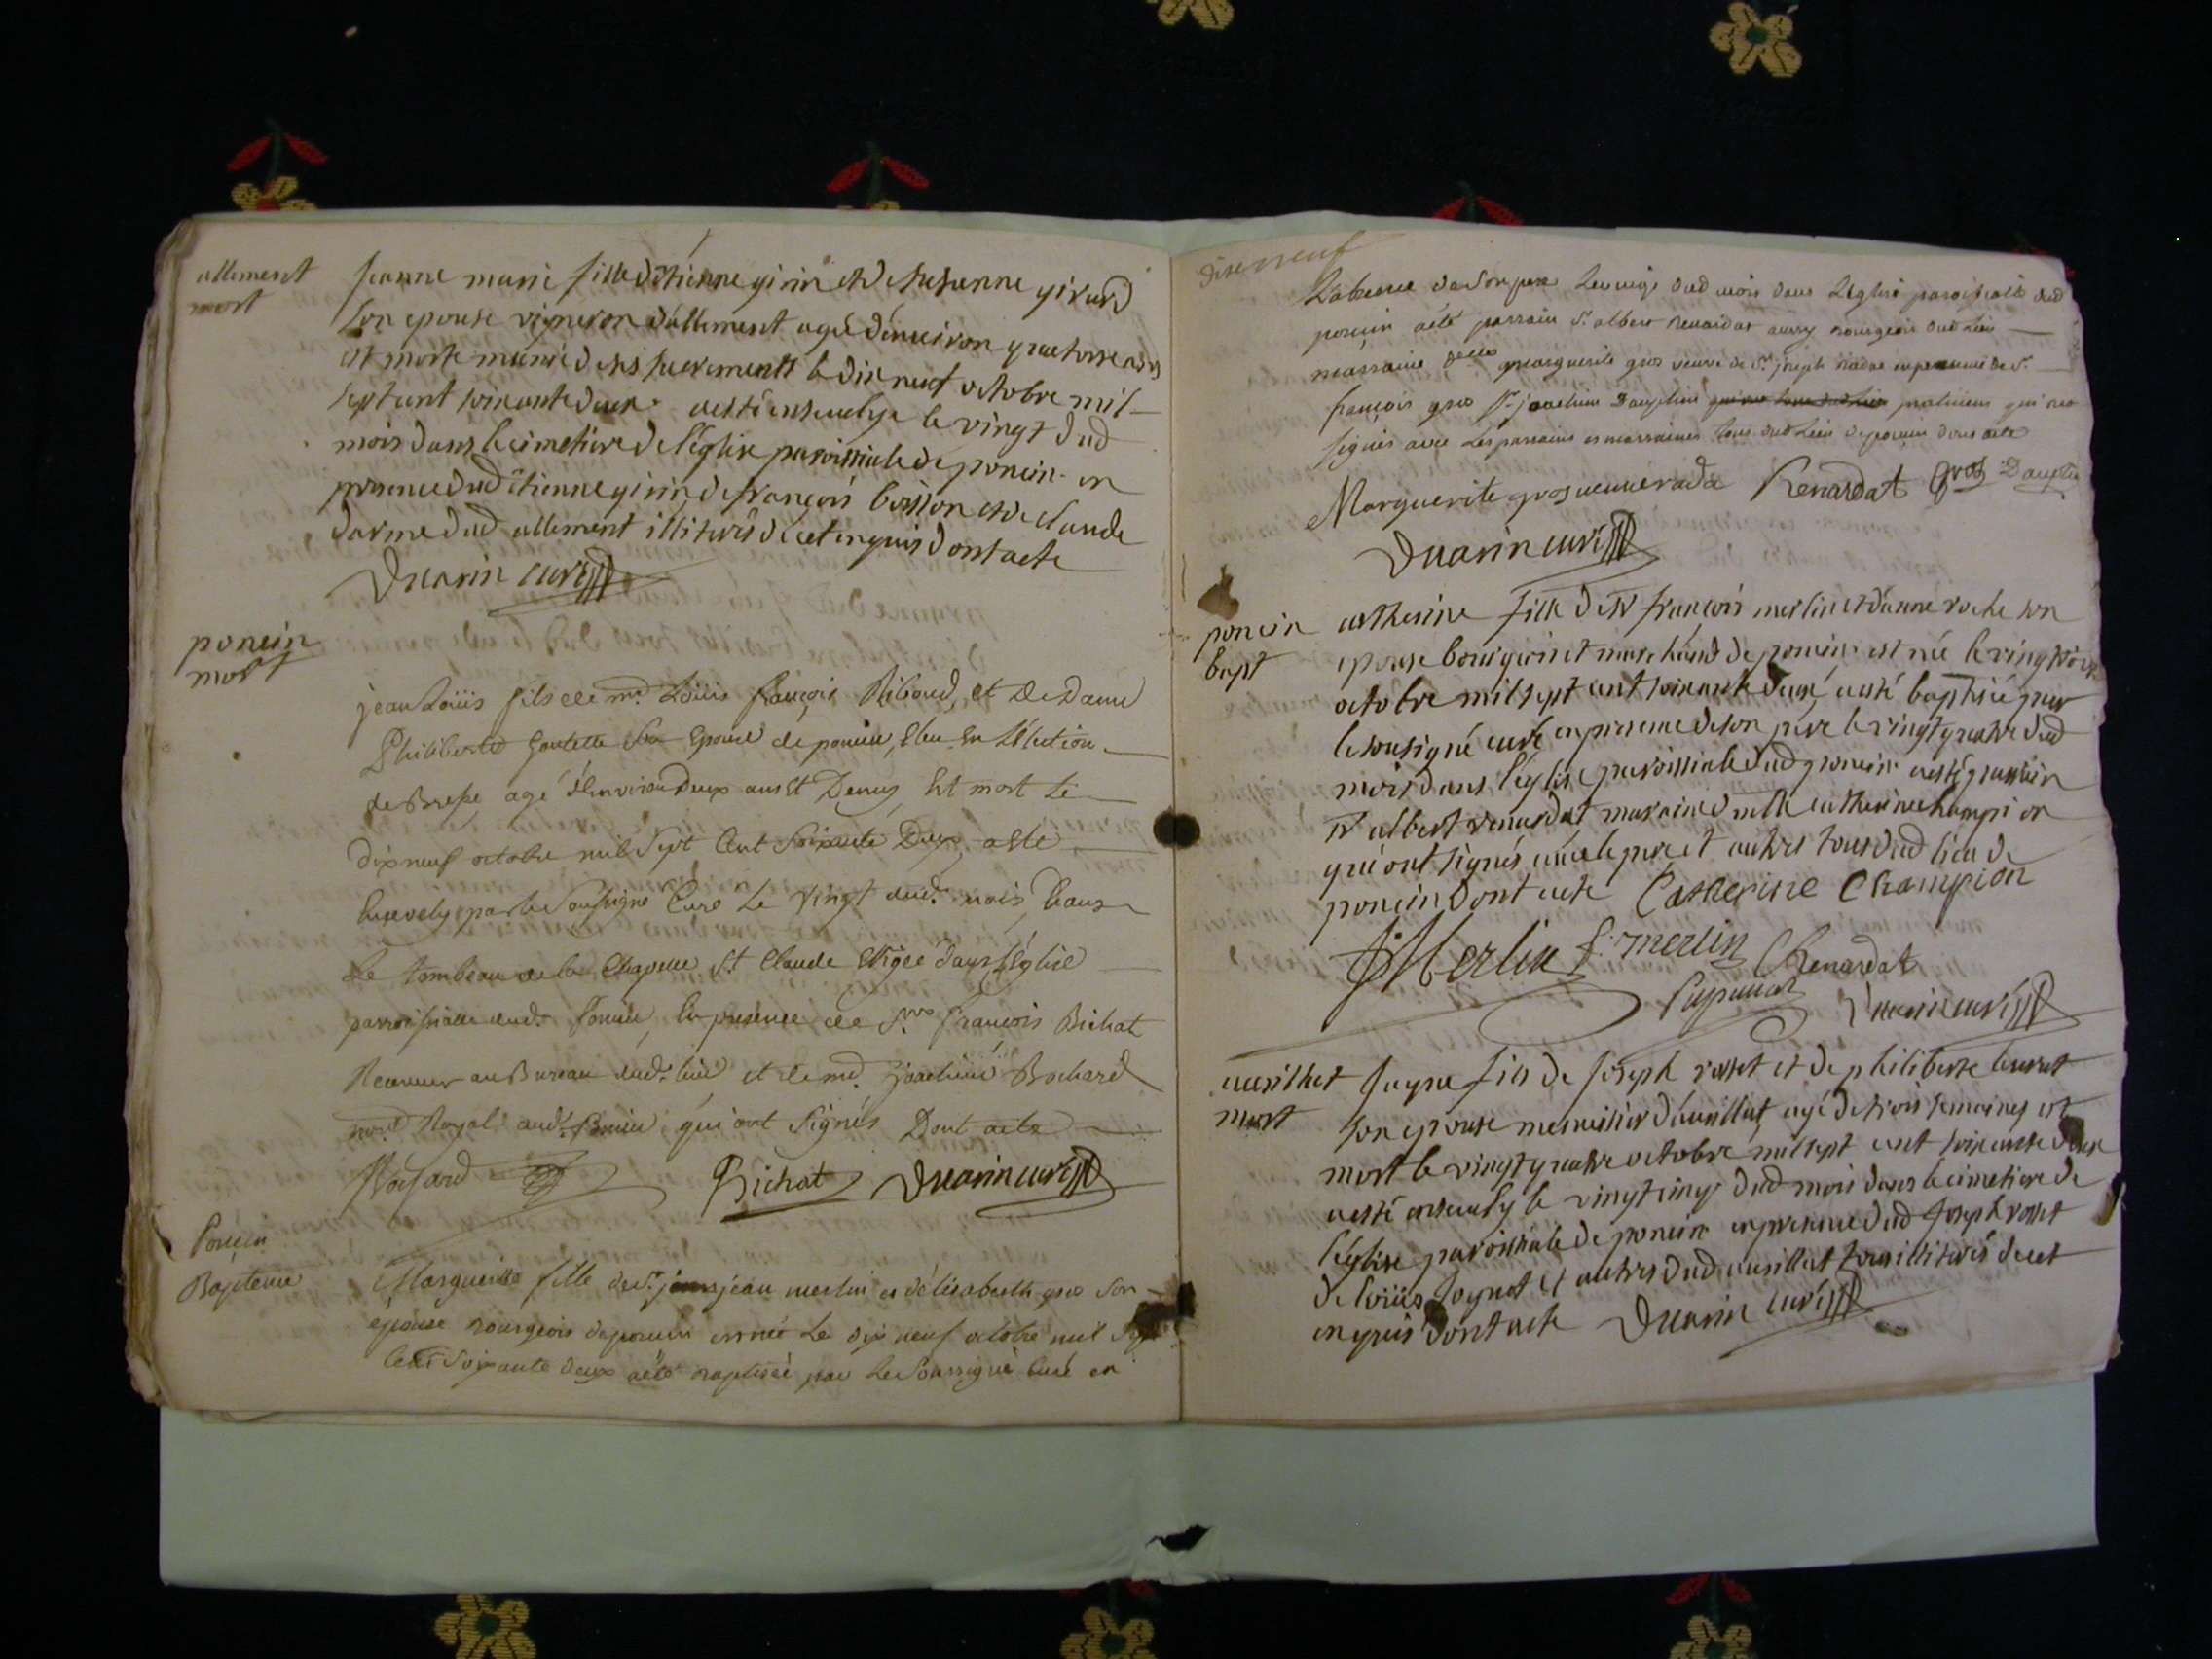 allement
mort
Jeanne marie fille d'étienne girin et de suzanne girard
son epouse vigneron d'allement agée d'environ quatorze ans
est morte munie de ses sacrements le dix neuf octobre mil
sept cent soixante deux a esté ensevelye le vingt dud
mois dans le cimetiere de l'église paroissiale de poncin en
presence dud étienne girin de françois boisson et de claude
darme dud allement illiterés de cet enquis dont acte
Duarin curé
poncin
mort
jean Loüis fils de md. Loüis françois Ribaud, et de Dame
Philiberte Goutelle son Epouse de poncin, Eleu En l'Election
de Bresse agé d'Environ deux ans Et Demy Est mort Le
dix neuf octobre mil Sept Cent Soixante Deux, a Eté
Ensevely par le Soussigné Curé Le Vingt dud. mois, Dans
Le tombeau de la Chapelle St Claude Erigée dans L'Eglise
parroissialle dud. Poncin, En présence de Sr. François Bichat
Receveur au Bureau dud. lieu et de md. Joachim Bochard
not. Royal aud. Poncin qui ont Signés Dont acte
Bochard Bichat Duarin curé
Poncin
Bapteme
Marguerite fille de Sr. jean merlin et d'élisabeth gros Son
épouse Bourgeois de poncin est née Le dix neuf octobre mil Sept
Cent Soixante deux a été Baptisée par Le Soussigné Curé en
dixneuf
L'absence de Son pere Le vingt dud mois dans L'église paroissiale dud
poncin a été parrain Sr. albert Renardat aussy Bourgeois dud Lieu
marraine delle marguerite gros veuve de Sr. joseph Radas en presence de Sr.
françois gros Sr. joachim Dauphin praticiens qui ont
signés avec Les parrains et marraines tous dud Lieu de poncin dont acte
Marguerite gros veuve rada Renardat Gros Dauphin
Duarin curé
poncin
bapt
catherine fille de Sr françois merlin et d'anne roche son
epouse bourgeois et marchand de poncin est née le vingt trois
octobre mil sept cent soixante deux a esté baptisée par
le sousigné curé en presence de son pere le vingt quatre dud
mois dans l'église paroissiale dud poncin a esté parrain
Sr albert renardat maraine delle catherine champion
qui ont signés avec le pere et autres tous dud lieu de
poncin dont acte Catherine Champion
Merlin f. merlin Renardat
Duarin curé
avrillat
mort
Jayme fils de Joseph rosset et de philiberte
son epouse menuisier d'avrillat agé de trois semaines est
mort le vingt quatre octobre mil sept cent soixante deux
a esté ensevely le vingt cinq dud mois dans le cimetiere de
l'église paroissiale de poncin en presence dud Joseph rosset
de loüis Joynot et autres dud avrillat tous illiterés de cet
enquis dont acte Duarin curé